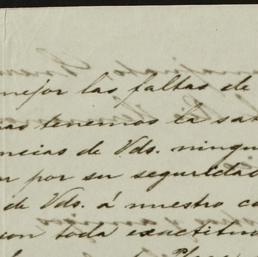 mejor las faltas de
tenemos la sa
ncias de Vds. ningu
por su seguridad
de Vds. á nuestro c
con toda exactitu